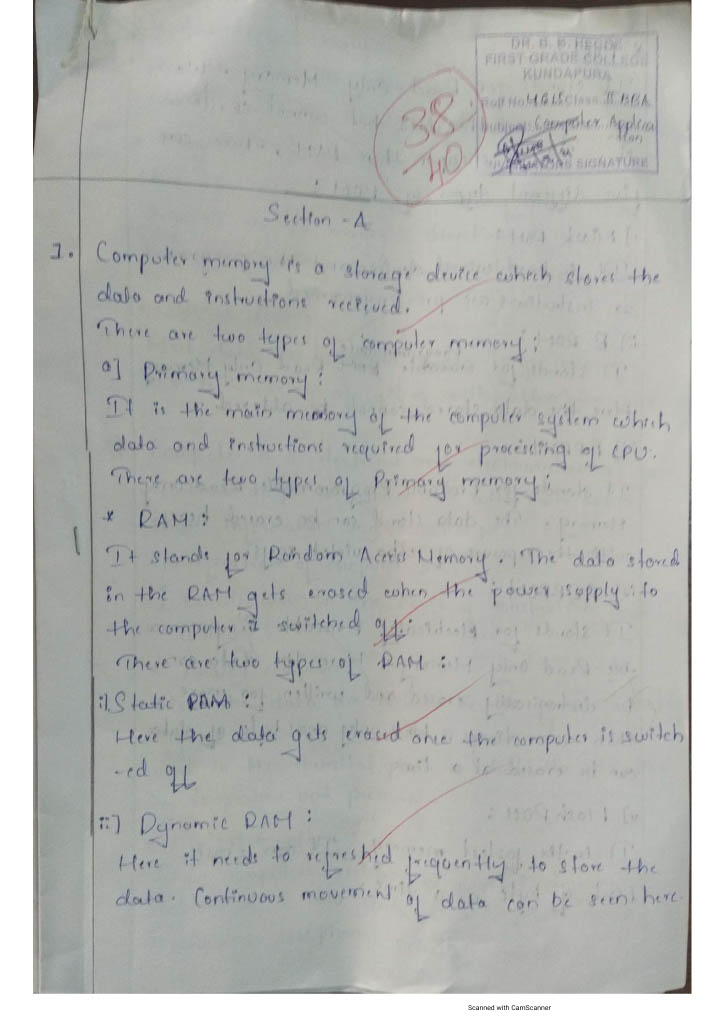 DR. B. B. HEGDE
FIRST GRADE COLLEGE
KUNDAPURA
Roll No Class II BBA
Subject Computer Applica
tion
SIGNATURE
38
40
Section - A
1. Computer memory is a storage device which stores the
data and instructions recieved.
There are two types of computer memory:
a] Primary memory:
It is the main memory of the computer system which
data and instructions required for processing of CPU.
There are two types of Primary memory:
* RAM:
It stands for Random Access Memory. The data stored
in the RAM gets erased when the power supply to
the computer is switched off.
There are two types of RAM:
i] Static RAM:
Here the data gets erased once the computer is switch
-ed off
ii] Dynamic RAM:
Here it needs to refreshed frequently to store the
data. Continuous movement of data can be seen here.
Scanned with CamScanner